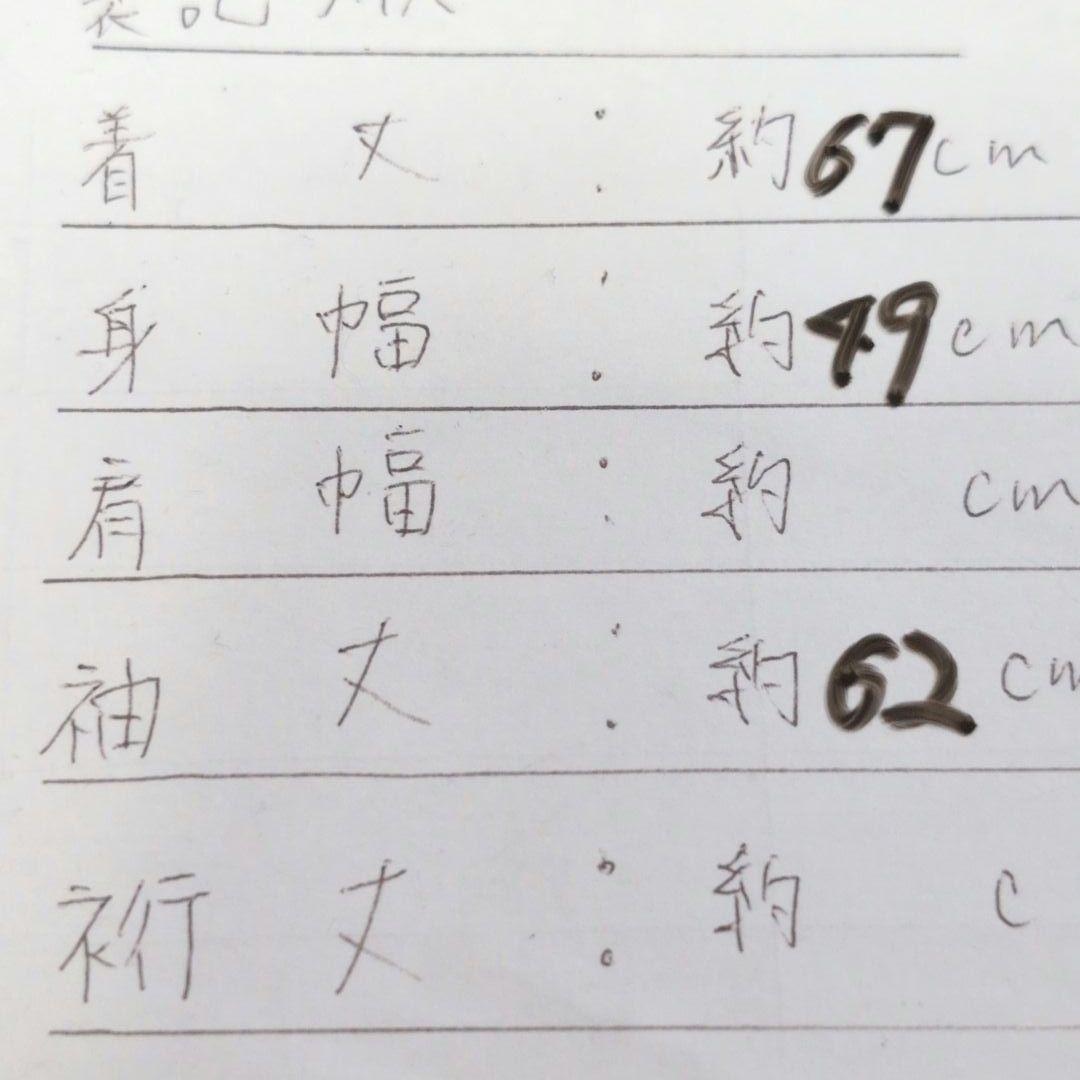 着丈：約67cm
身幅：約49cm
肩幅：約 cm
袖丈：約62cm
裄丈：約 c